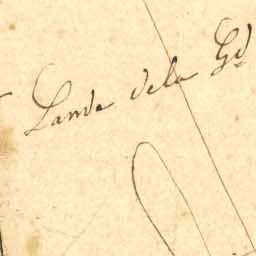 Lande dela Gd